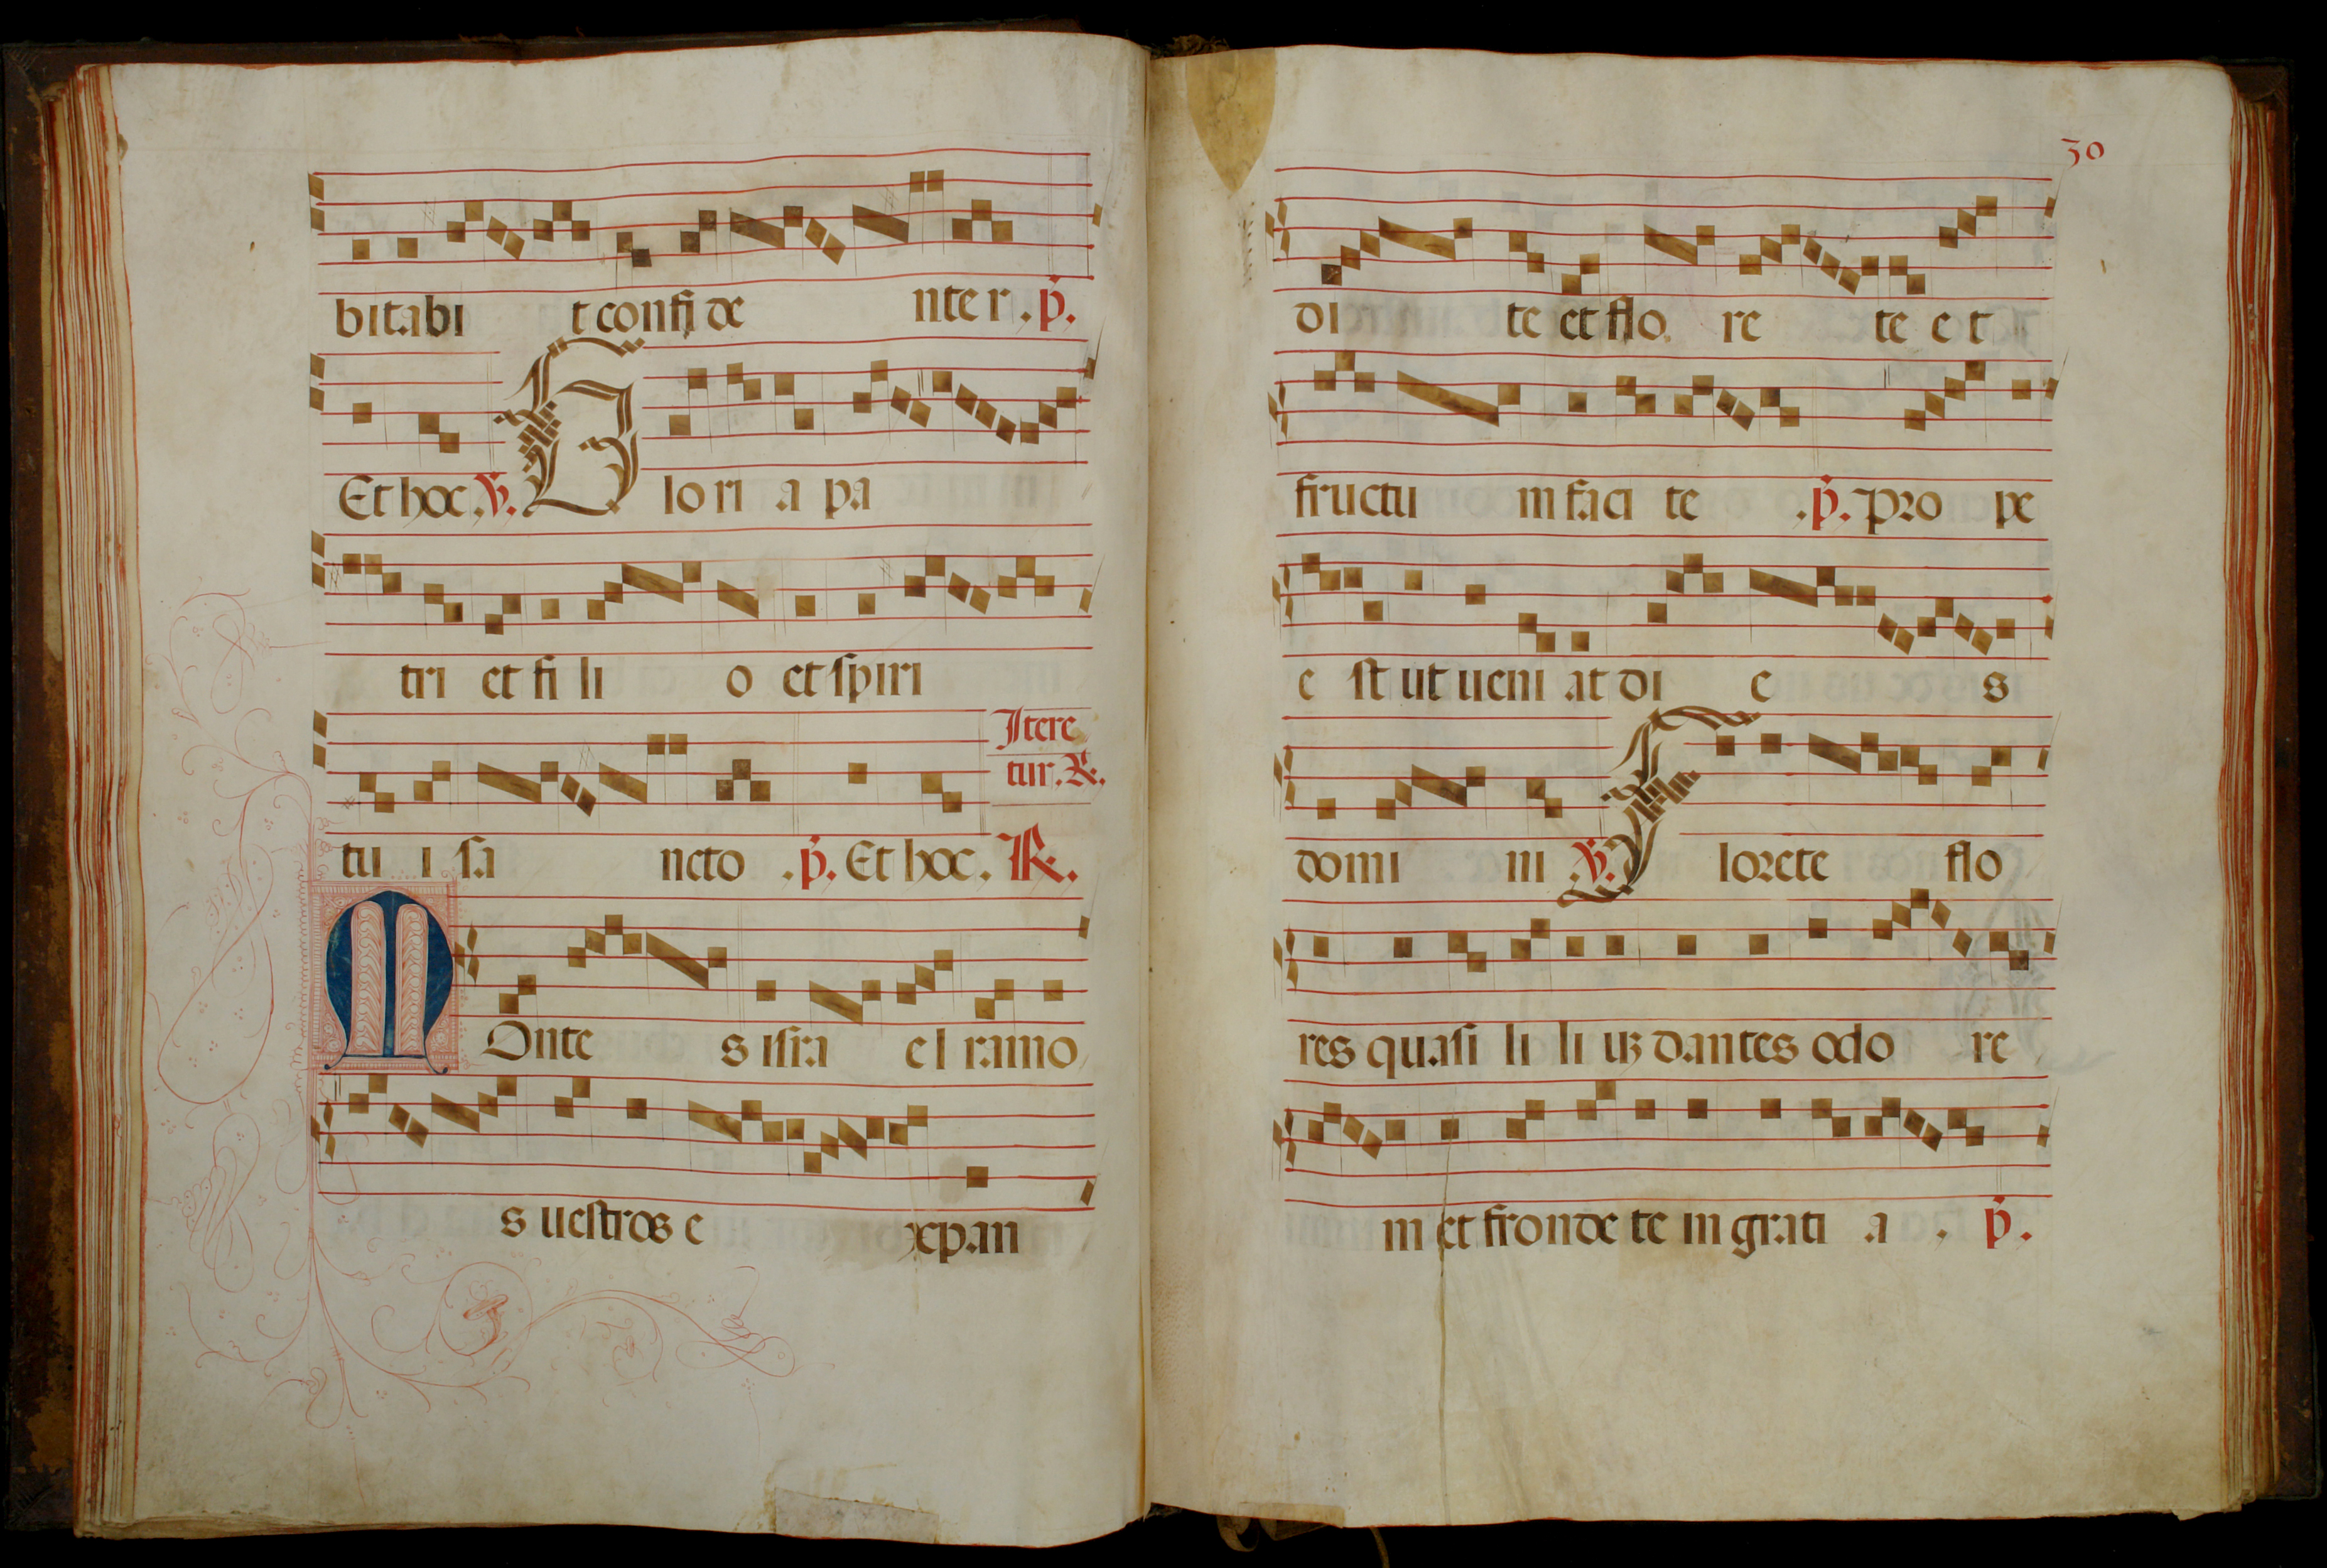 bitabi t confi de nte r . p̄.
Et hoc . V̄. Glo ri a pa
tri et fi li o et spiri
Itere
tur. R̄.
tu i sa ncto . p̄. Et hoc . R̄.
MOnte s isra el ramo
s uestros e xpan
30
di te et flo re te e t
fructu m faci te . p̄. Pro pe
e st ut ueni at di e s
domi ni V̄. Florete flo
res quasi li li uȝ dantes odo re
m et fronde te in grati a . p̄.